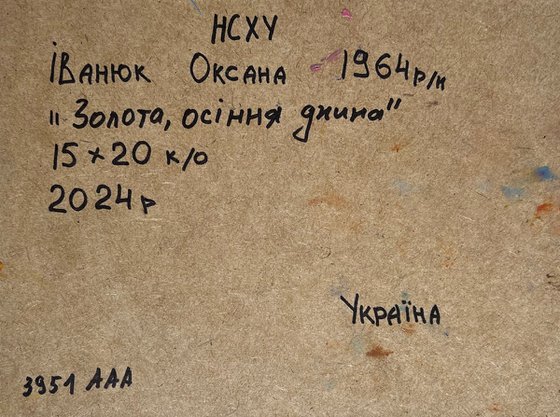 НСХУ
Іванюк Оксана 1964 р/н
"Золота, осіння днина"
15 × 20 к/о
2024 р
Україна
3951 ААА